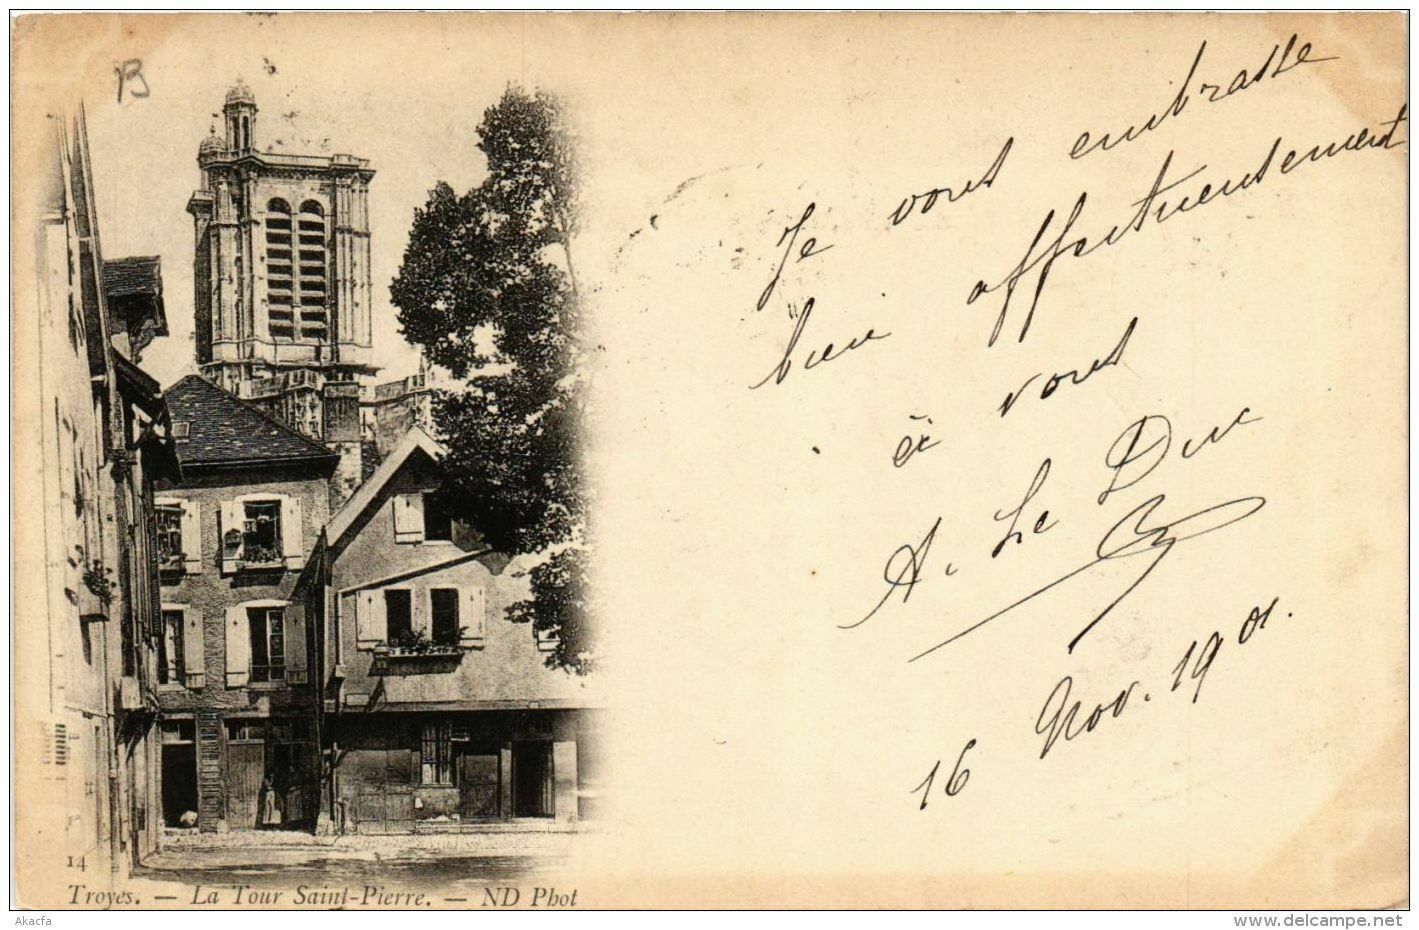 B
Je vous embrasse
bien affectueusement
à vous
A. Le Duc
16 Nov. 1901.
14
Troyes. — La Tour Saint-Pierre. — ND Phot
Akacfa
www.delcampe.net